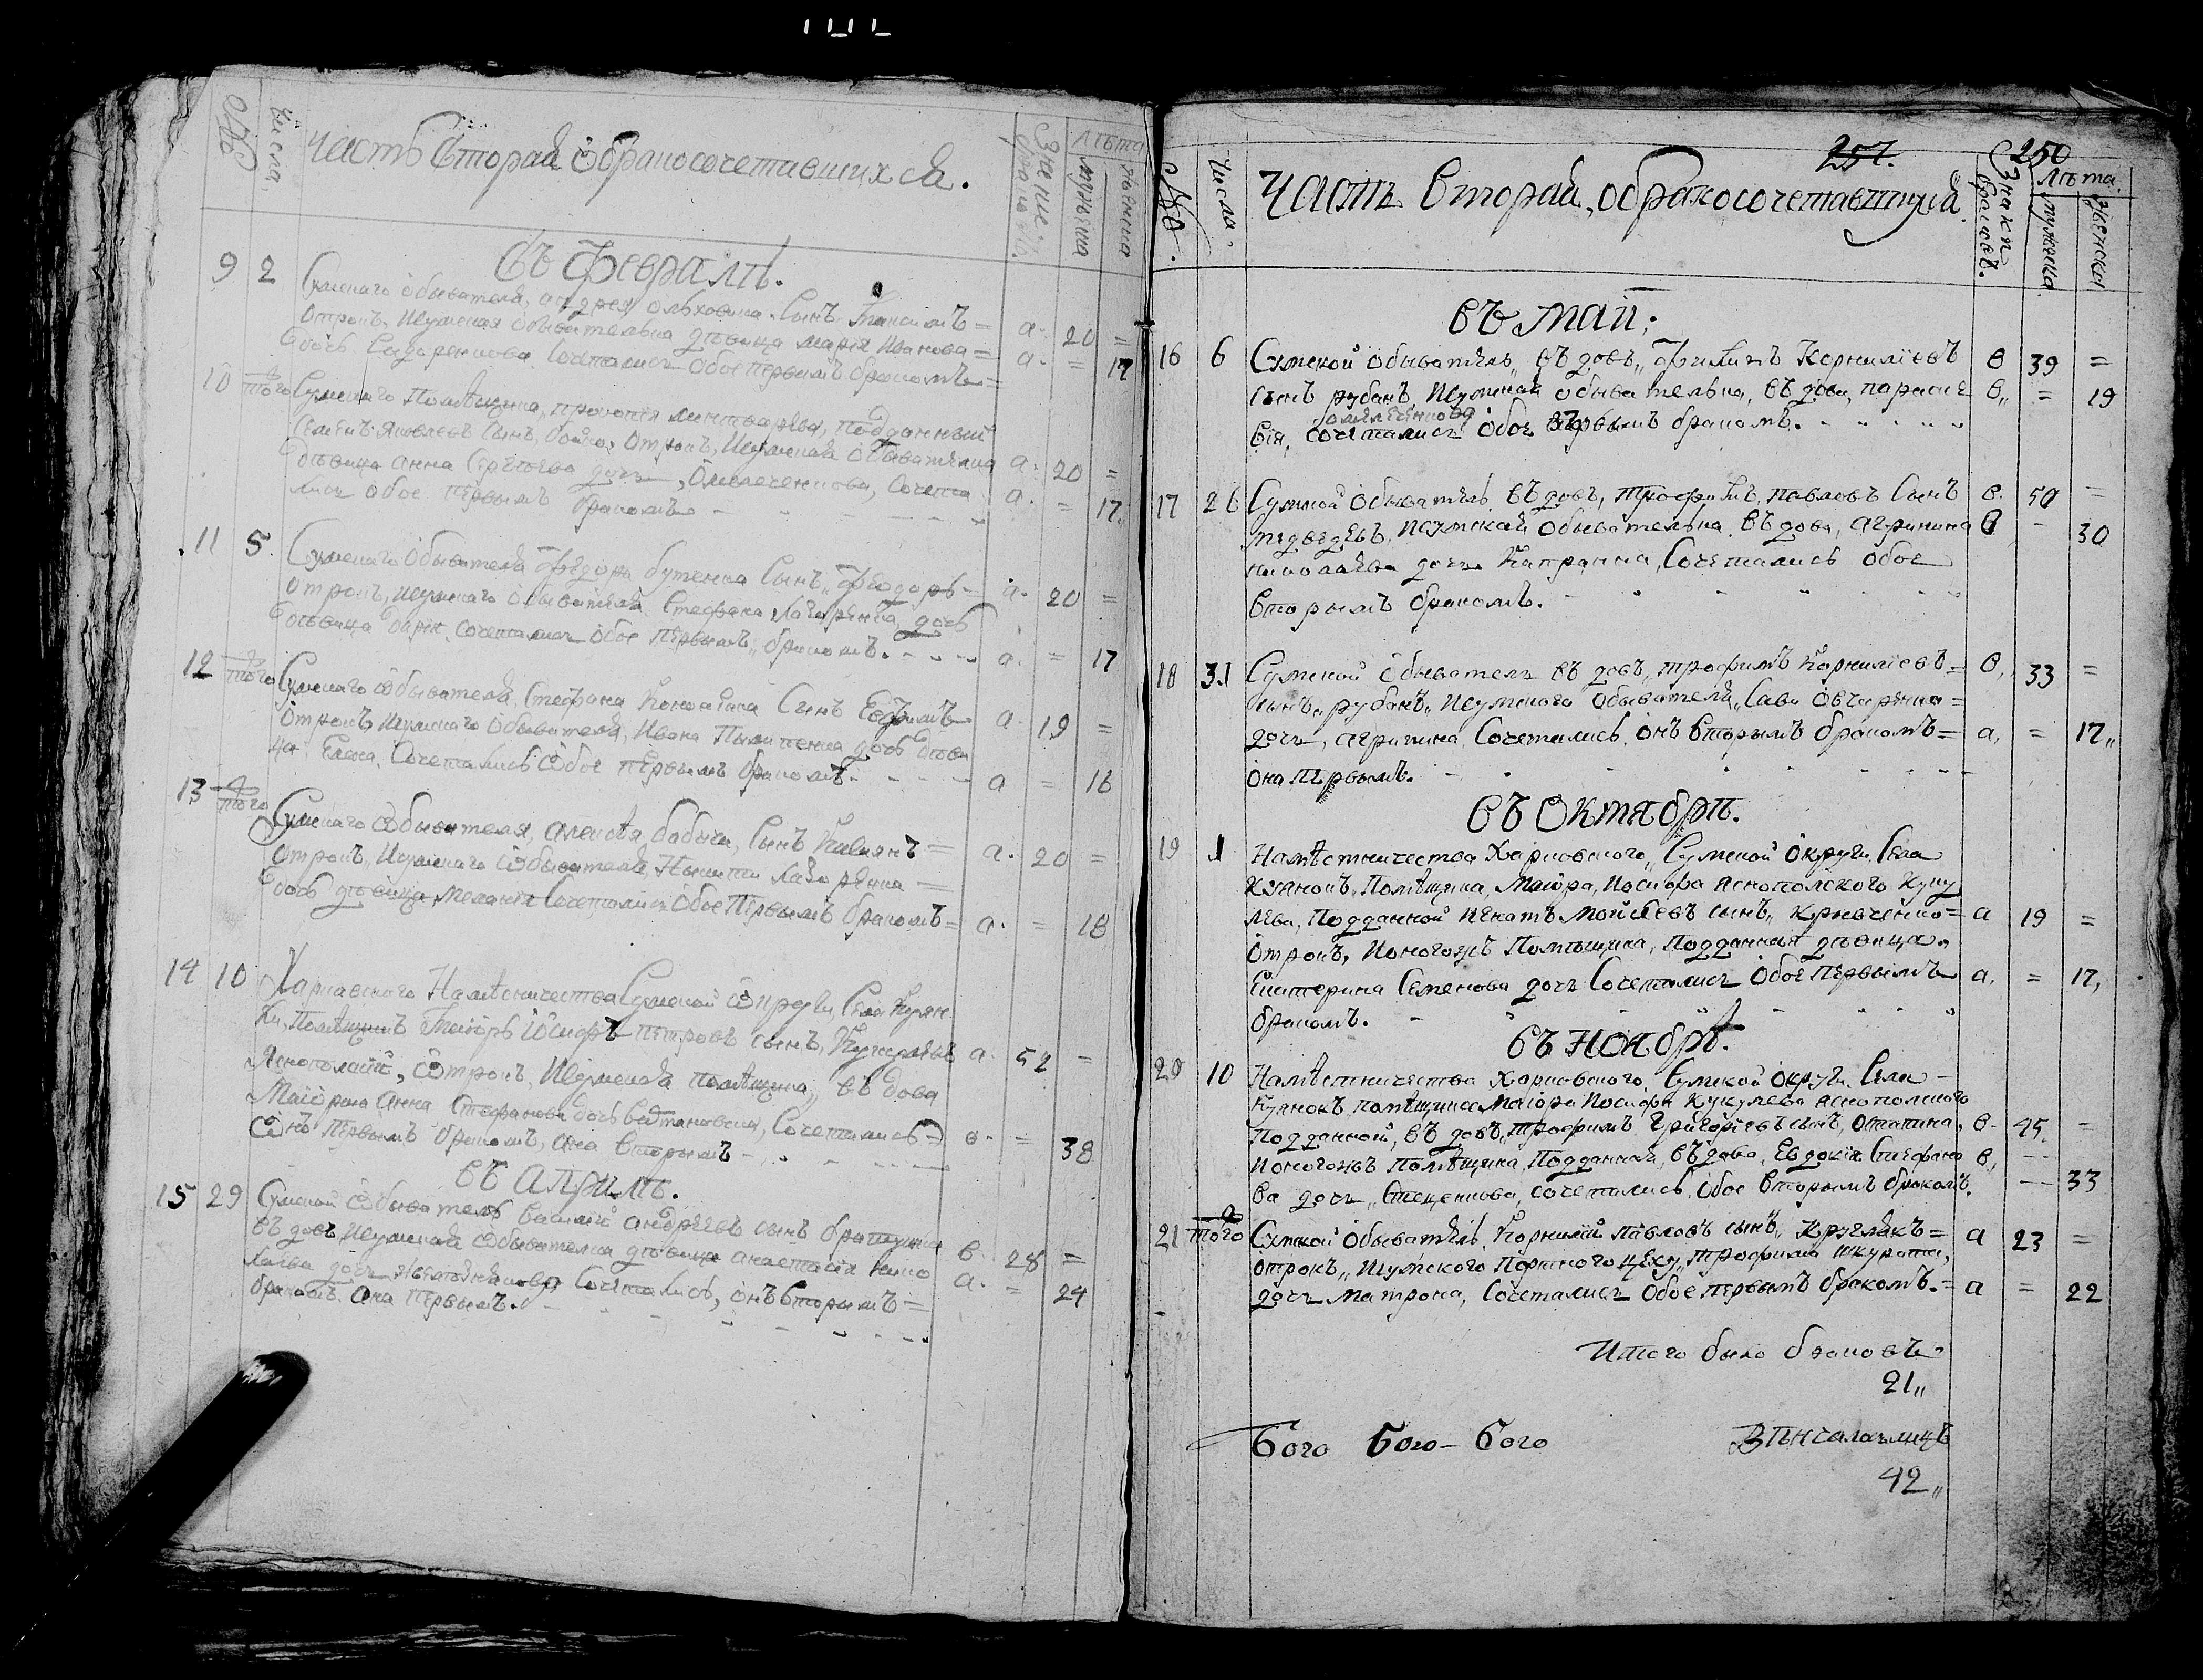 №
числа
Часть вторая о бракосочетавшихся.
Знаки браковъ.
Лѣта
мужеска
женска
Въ февралѣ.
9 2 Сумскаго обывателя, андрея ольховика сынъ
отрокъ, исумская обывателка дѣвица марія иванова = а. 20 =
дочь Сидоренкова Сочетались обое первымъ бракомъ = а. = 17
10 того Сумскаго Помѣщика, прокопія линтварева, подданный
Семенъ яковлевъ сынъ, отрокъ, исумская обывателка
дѣвица анна Сергѣева дочь, Омелченкова, Сочета а. 20 =
лись обое первымъ бракомъ а. = 17.
11 5. Сумскаго обывателя федора бутенка Сынъ, феодоръ = а. 20 =
отрокъ, исумскаго обывателя Стефана Лазаренка, дочь
дѣвица сочетались обое первымъ, бракомъ. а. = 17
12 того Сумскаго обывателя, Стефана Сынъ
отрокъ исумскаго обывателя, Ивана Пилипенка дочь дѣви а. 19 =
ца Елена, Сочетались обое первымъ бракомъ. а = 16
13 того Сумскаго обывателя, алексѣя, бабыча, Сынъ =
отрокъ, исумскаго обывателя, Никиты Лазоренка = а. 20 =
дочь дѣвица, меланія Сочетались обое Первымъ бракомъ = а. = 18
14 10 Харковского Намѣсничества Сумской округи, Села Куян
ки, помѣщикъ маіоръ іосифъ петровъ сынъ, Кукулевъ а. 52 =
Яснополскій, отрокъ, исумская помѣщица, въдова
маіорша анна Стефанова дочь Сочетались =
онъ первымъ бракомъ, она вторымъ в. = 38
Въ априлѣ.
15 29 Сумской обыватель василій андрѣевъ сынъ
въдовъ, исумская обывателка дѣвица анастасія нико в. 28 =
лаева дочь Сочетались, онъ вторымъ = а. = 24
бракомъ она первымъ.
257. 250
№.
Числа.
Часть вторая, о бракосочетавшихся.
Знаки браковъ.
Лѣта.
мужеска
женска
Въ маіи.
16 6 Сумской обыватель, въдовъ, филипъ Корниліевъ в 39 =
сынъ рубанъ, исумская обывателка, въдова, параске в,, = 19
Омелченкова
вія, сочетались обое первымъ бракомъ.
17 26 Сумской обыватель въдовъ, трофимъ, павловъ Сынъ в. 50 =
медведевъ, исумская обывателка въдова, агрипина в - 30
николаева дочь Сочетались обое
вторымъ бракомъ.
18 31 Сумской обыватель въдовъ, трофимъ Корниліевъ = в, 33 =
сынъ, рубанъ, исумского обывателя, Савы Овчаренка =
дочь, агрипина, Сочетались, онъ вторымъ бракомъ = а, = 17,,
она первымъ.
Въ Октябрѣ.
19 1 Намѣстничества Харковского, Сумской Округи, Села
Куянокъ, Помѣщика, маіора, Иосифа яснополского Куку
лева, Подданной игнатъ мойсеевъ сынъ, кривченко = а 19 =
отрокъ, ионогожъ Помѣщика, подданная дѣвица,
Екатерина Семенова дочь Сочетались обое первымъ а, = 17,
бракомъ.
Въ Ноябрѣ.
20 10 Намѣстничества Харковского, Сумской Округи, Села
Куянокъ помѣщика маіора Иосифа Кукулева яснополского
Подданной, въдовъ, трофимъ Григорієвъ сынъ, в. 45 =
ионогожъ помѣщика, подданная, въдова, Евдокія Стефано в,
ва дочь, Стеценкова, сочетались, обое вторымъ бракомъ. — 33
21 того Сумской обыватель, Корнилій павловъ сынъ, кругляк = а 23 =
отрокъ, исумского цеху, трофима шкурата,
дочь матрона, Сочетались Обое первымъ бракомъ. = а = 22
Итого было браковъ
21,,
бого бого - бого
42,,